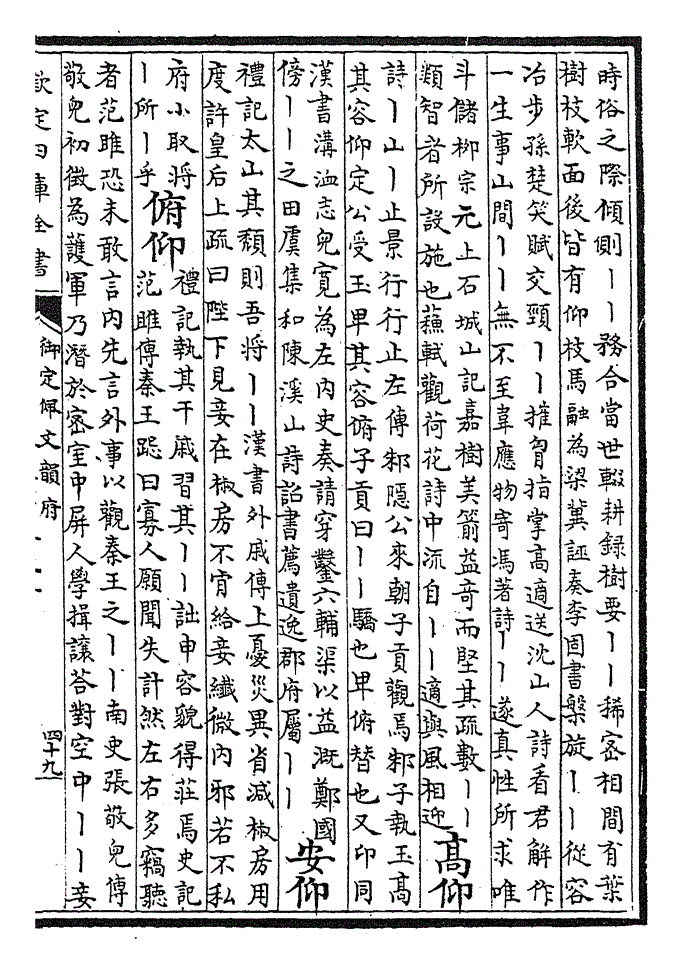 時俗之際傾側丨丨務合當世輟耕録樹要丨丨稀宻相間有葉
樹枝軟面後皆有仰枝馬融為梁冀誣奏李固書槃旋丨丨從容
冶步孫楚笑賦交頸丨丨摧胷指掌高適送沈山人詩看君解作
一生事山間丨丨無不至韋應物寄馮著詩丨丨遂真性所求唯
斗儲栁宗元上石城山記嘉樹美箭益竒而堅其疏數丨丨
類智者所設施也蘓軾觀荷花詩中流自丨丨適與風相迎
髙仰
詩丨山丨止景行行止左傳邾隱公來朝子貢觀焉邾子執玉髙
其容仰定公受玉卑其容俯子貢曰丨丨驕也卑俯替也又卬同
漢書溝洫志兒寛為左內史奏請穿鑿六輔渠以益溉鄭國
傍丨丨之田虞集和陳溪山詩詔書薦遺逸郡府屬丨丨
安仰
禮記太山其頽則吾將丨丨漢書外戚傳上憂災異省減椒房用
度許皇后上疏曰陛下見妾在椒房不肯給妾纖微內邪若不私
府小取將
丨所丨乎
俯仰
禮記執其干戚習其丨丨詘申容貌得莊焉史記
范雎傳秦王跽曰寡人願聞失計然左右多竊聽
者范雎恐未敢言內先言外事以觀秦王之丨丨南史張敬兒傳
敬兒初徵為護軍乃潛於宻室中屏人學揖讓荅對空中丨丨妾
欽定四庫全書
御定佩文韻府
四十九